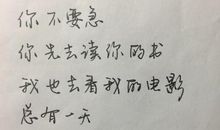 你不要急
你先去读你的书
我也去看我的电影
总有一天